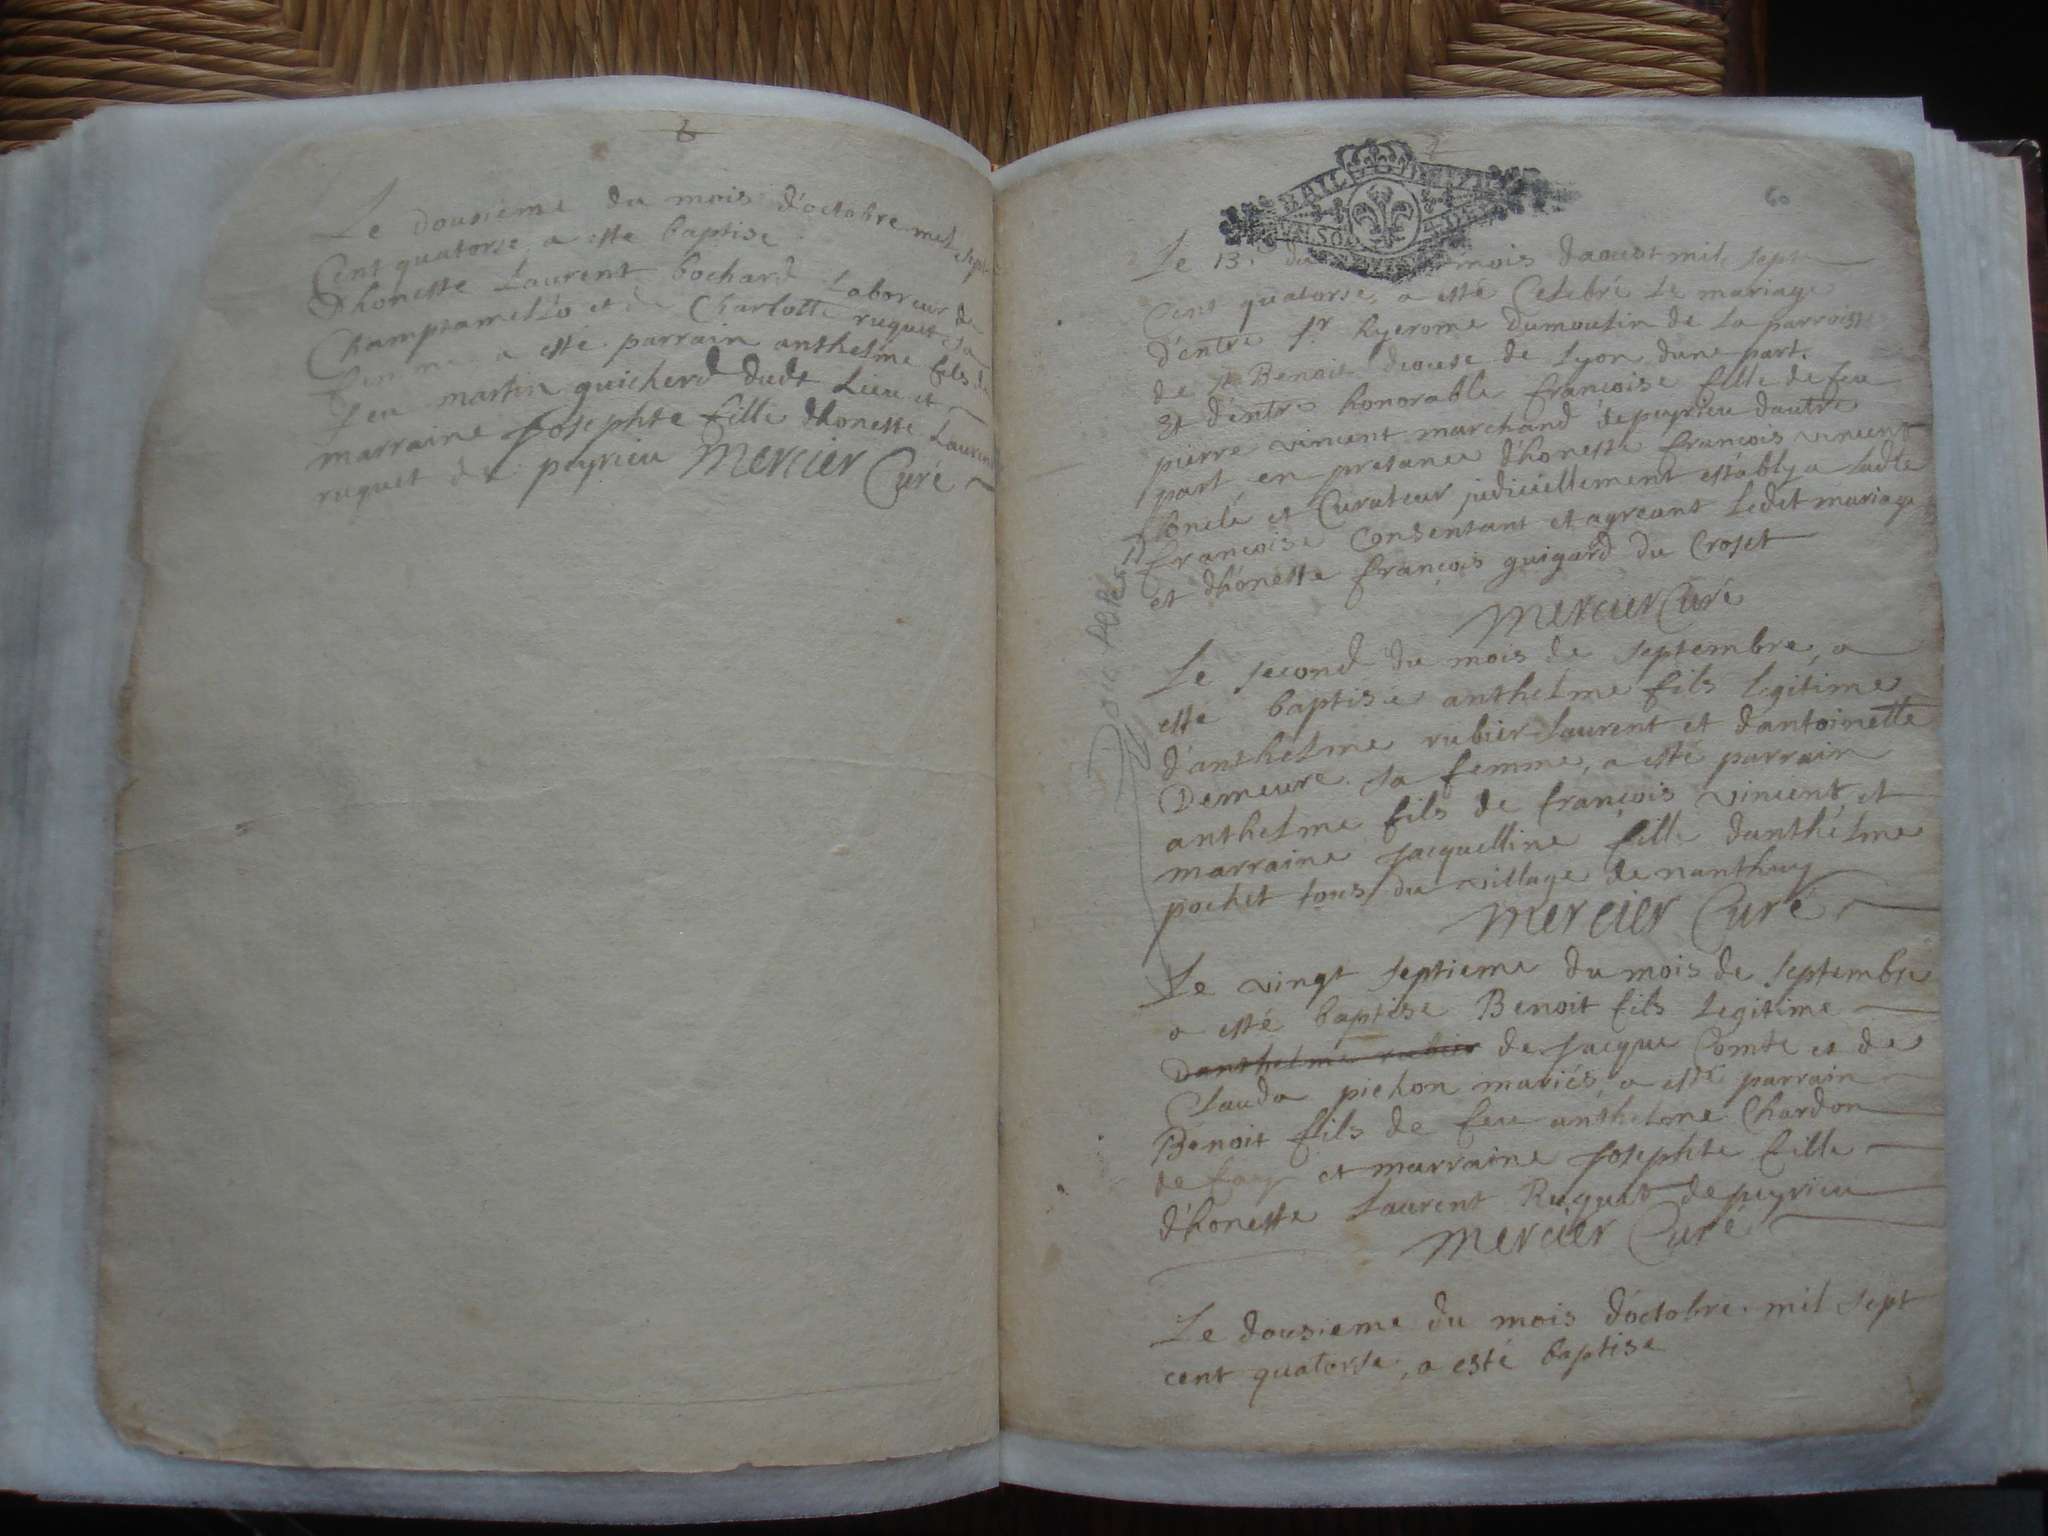 6
Le dousieme du mois d'octobre mil sept
Cent quatorse a esté baptise
dhoneste Laurent bochard Laboreur de
et de Charlotte ruquet sa
femme a esté parrain anthelme fils de
feu martin guicherd dudt Lieu et
marraine Josephte fille dhoneste Laurent
ruquet de peyrieu Mercier Curé
7
60
Le 13. du mois daoust mil sept
Cent quatorse, a esté Celebré Le mariage
d'entre Sr hyerome dumoulin de La parroisse
de St Benoit de Lyon dune part.
Et d'entre honorable françoise fille de feu
pierre vincent marchand de peyrieu dautre
part, en presance dhoneste françois vincent
oncle et Curateur judiciellement estably a Ladte
françoise Consentant et agreant Ledit mariage
et dhoneste françois guigard du Croset
Mercier Curé
Le second du mois de septembre, a
esté baptise anthelme fils legitime
d'anthelme rubier Laurent et dantoinette
Demeure sa femme, a esté parrain
anthelme fils de françois vincent et
marraine Jacquelline fille danthelme
pochet tous du village de nanthuy
Mercier Curé
Le vingt septieme du mois de septembre
a esté baptise Benoit fils Legitime
danthelme rubier de Jacque Comte et de
Clauda pichon mariés a esté parrain
Benoit fils de feu anthelme Chardon
de fay et marraine Josephte fille
d'honeste Laurent Ruquet de peyrieu
Mercier Curé
Le dousieme du mois d'octobre mil sept
cent quatorse, a esté baptise